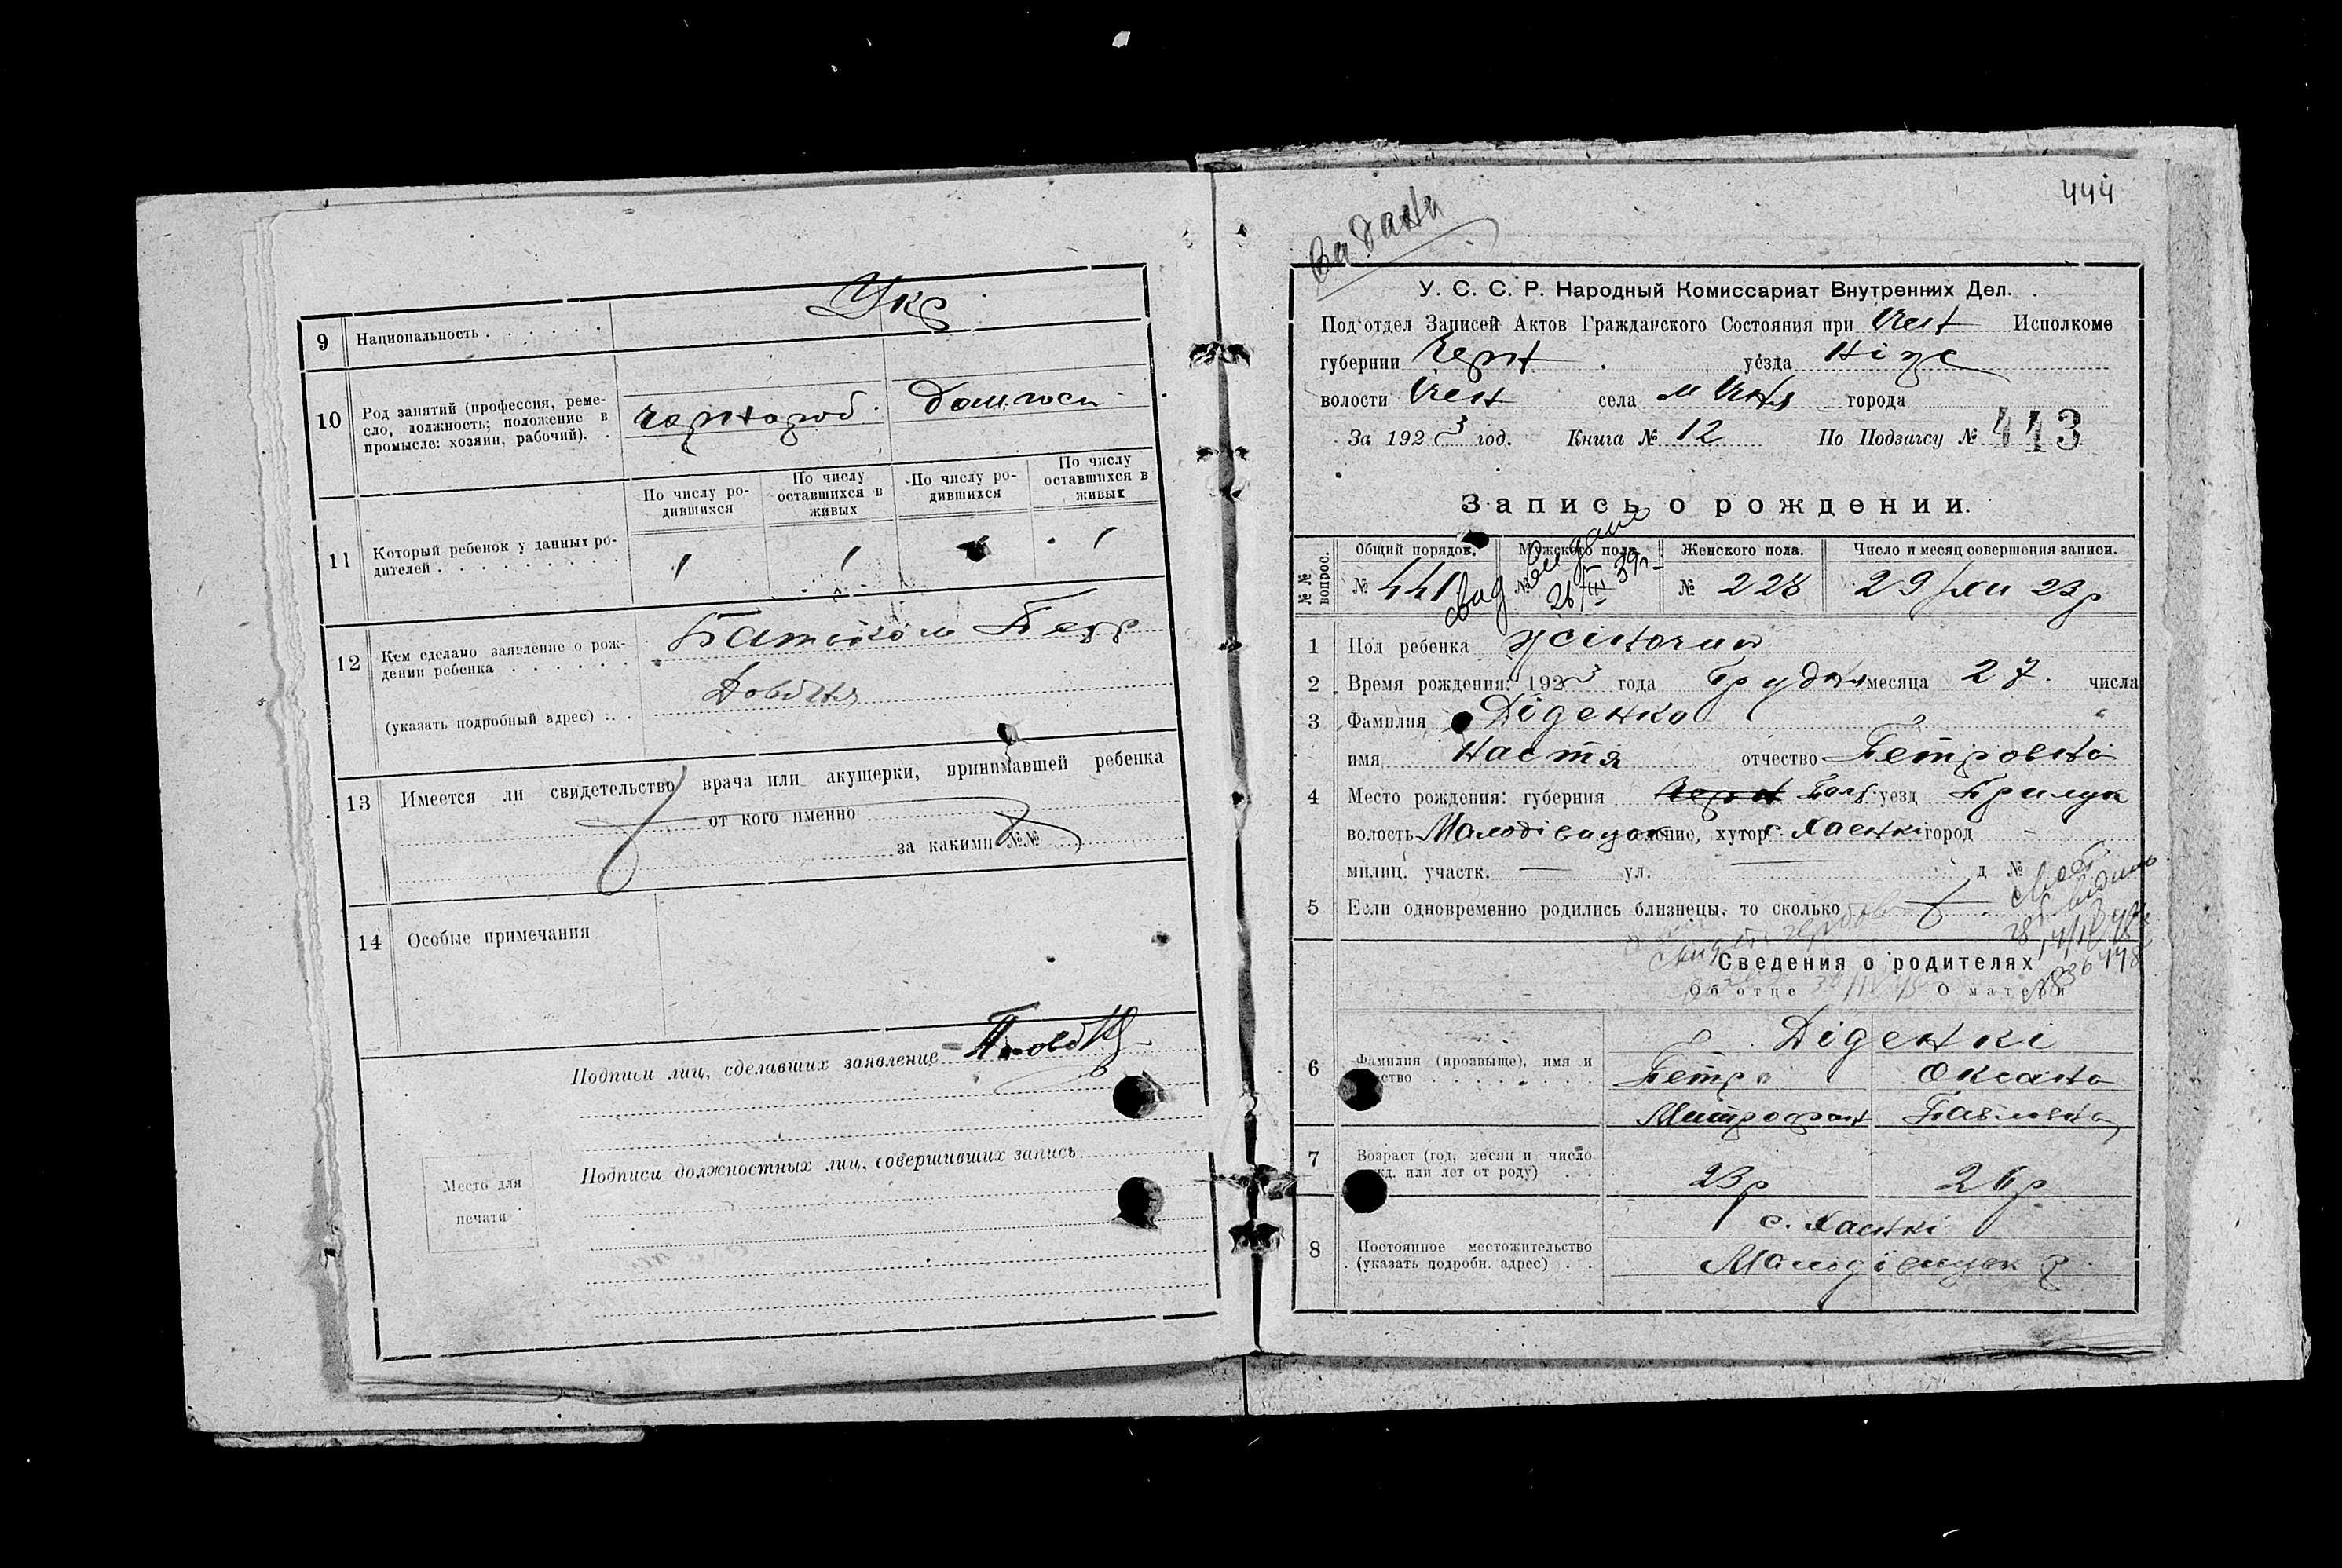 9 Национальность . . . . . . Укр
10 Род занятий (профессия, реме-
сло, должность; положение в
промысле: хозяин, рабочий). .
чорнороб. Дом. госп.
По числу ро-
дившихся
По числу
оставшихся в
живых
По числу ро-
дившихся
По числу
оставшихся в
живых
11 Который ребенок у данных ро-
дителей . . . . . . . . . .
1 1 1
12 Кем сделано заявление о рож-
дении ребенка . . . . . .
Батьком
(указать подробный адрес) . . .
13 Имеется ли свидетельство врача или акушерки, принимавшей ребенка
от кого именно
за какими №№
14 Особые примечания
Подписи лиц, сделавших заявление
Подписи должностных лиц, совершивших запись
Место для
печати
444
У. С. С. Р. Народный Комиссариат Внутренних Дел.
Под'отдел Записей Актов Гражданского Состояния при Ичен Исполкоме
губернии Черн уезда Ніж
волости Ичен села м Ичня города
За 1923 год. Книга № 12 По Подзагсу № 443
Запись о рождении.
№ № вопрос.
Общий порядов. Мужского пола. Женского пола. Число и месяц совершения записи.
№ 441 № № 228 29/XII 23р
свид видано
26/III 39г
1 Пол ребенка жіночий
2 Время рождения: 1923 года Грудня месяца 27 числа
3 Фамилия Діденко
имя Настя отчество Петровна
4 Место рождения: губерния Черн Полт уезд Прилук
волость Малодівицьк селение, хутор с. Хаенки город -
милиц. участк. — ул. — д №
5 Если одновременно родились близнецы, то сколько
Сведения о родителях
Об отце О матери
6 Фамилия (прозвыще), имя и
отчество . . . . . . . .
Діденкі
Петро Оксана
Митрофан Павловна
7 Возраст (год, месяц и число
рожд. или лет от роду) . .
23р 26р
8 Постоянное местожительство
(указать подробн. адрес) . .
с. Хаенкі
Малодівицьк р.